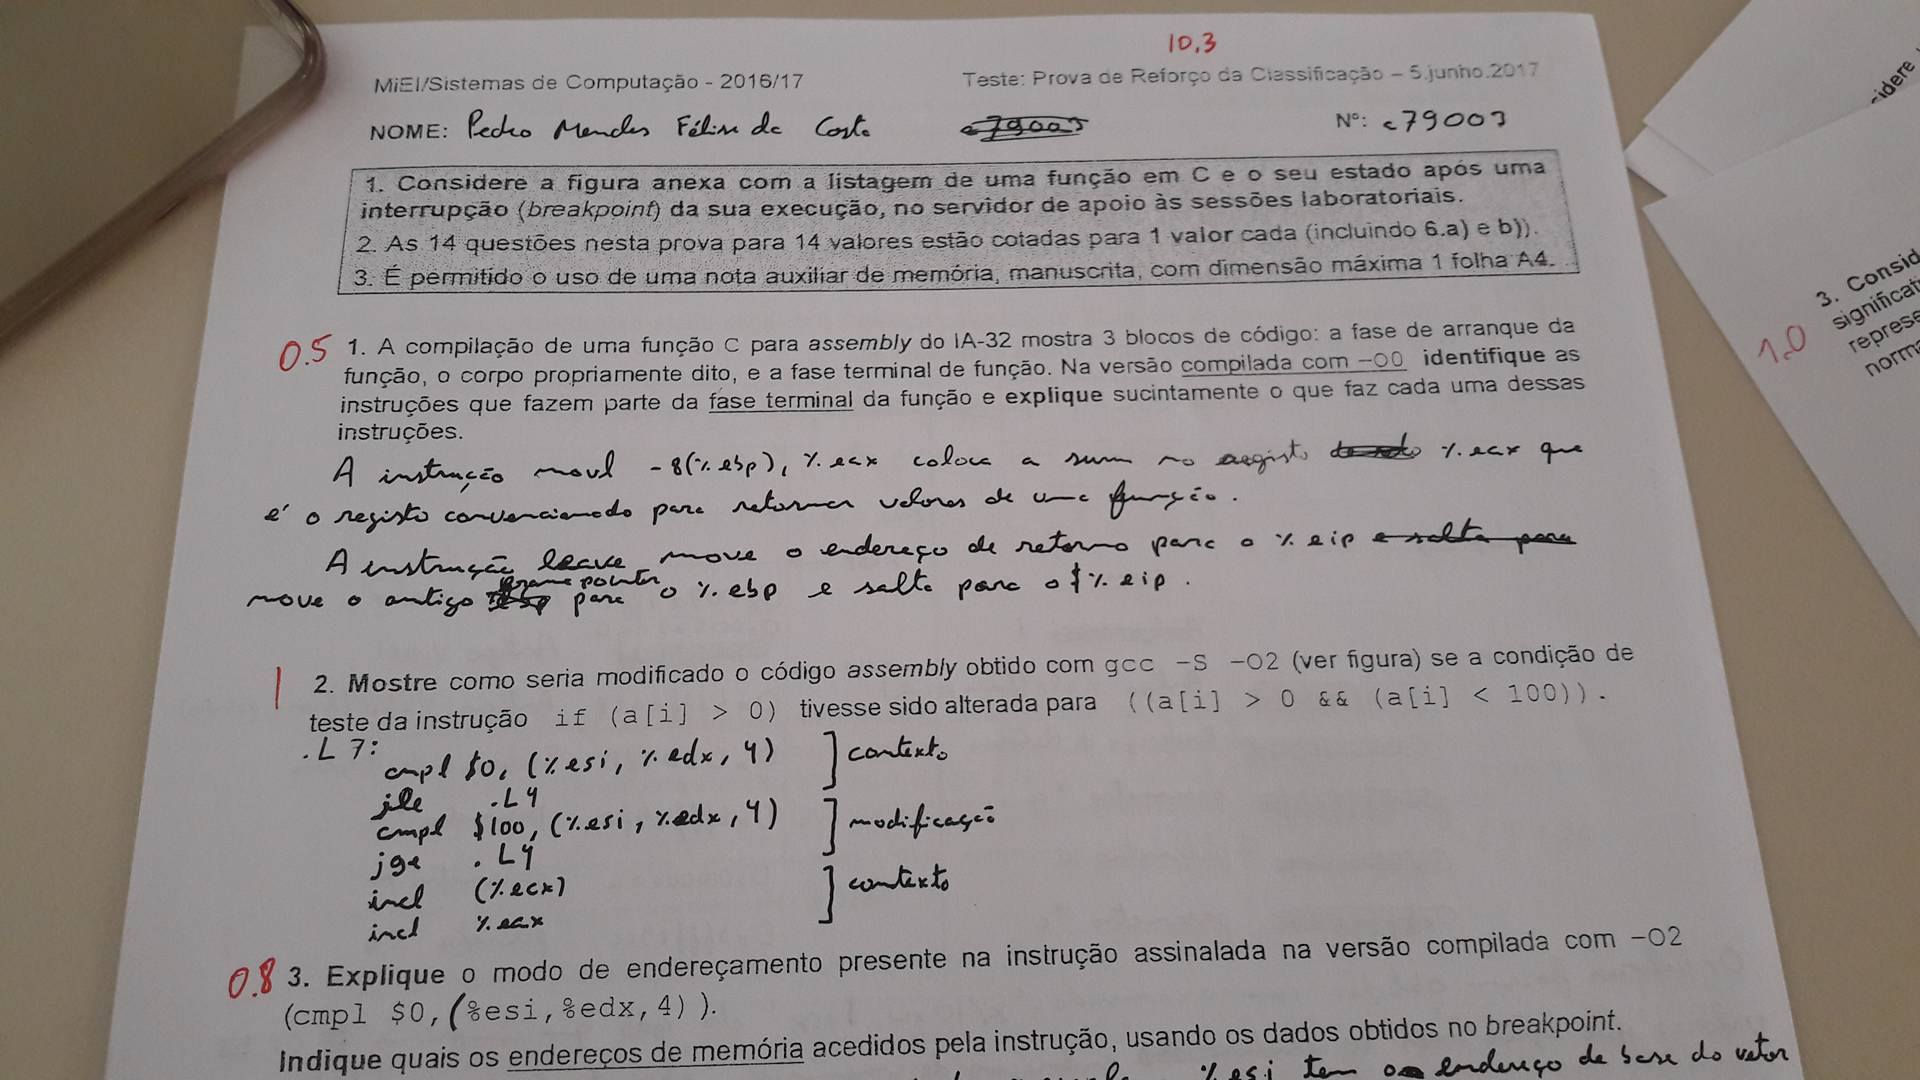 10.3
MiEI/Sistemas de Computação - 2016/17 Teste: Prova de Reforço da Classificação – 5.junho.2017
NOME: Pedro Mendes Félix da Costa a79003 Nº: a79003
1. Considere a figura anexa com a listagem de uma função em C e o seu estado após uma
interrupção (breakpoint) da sua execução, no servidor de apoio às sessões laboratoriais.
2. As 14 questões nesta prova para 14 valores estão cotadas para 1 valor cada (incluindo 6.a) e b)).
3. É permitido o uso de uma nota auxiliar de memória, manuscrita, com dimensão máxima 1 folha A4.
0.5 1. A compilação de uma função C para assembly do IA-32 mostra 3 blocos de código: a fase de arranque da
função, o corpo propriamente dito, e a fase terminal de função. Na versão compilada com –O0 identifique as
instruções que fazem parte da fase terminal da função e explique sucintamente o que faz cada uma dessas
instruções.
A instrução movl -8(%ebp), %eax coloca a sum no registo %eax que
é o registo convencionado para retornar valores de uma função.
A instrução leave move o endereço de retorno para o %eip e salta para
move o antigo frame pointer para o %ebp e salta para o %eip.
1 2. Mostre como seria modificado o código assembly obtido com gcc -S -O2 (ver figura) se a condição de
teste da instrução if (a[i] > 0) tivesse sido alterada para ((a[i] > 0 && (a[i] < 100)).
.L7:
cmpl $0, (%esi, %edx, 4) ] contexto
jle .L4
cmpl $100, (%esi, %edx, 4) ] modificação
jge .L4
incl (%ecx) ] contexto
incl %eax
0.8 3. Explique o modo de endereçamento presente na instrução assinalada na versão compilada com –O2
(cmpl $0,(%esi,%edx,4)).
Indique quais os endereços de memória acedidos pela instrução, usando os dados obtidos no breakpoint.
%esi tem o endereço de base do vetor
idere
1.0
3. Consid
significati
represe
norma